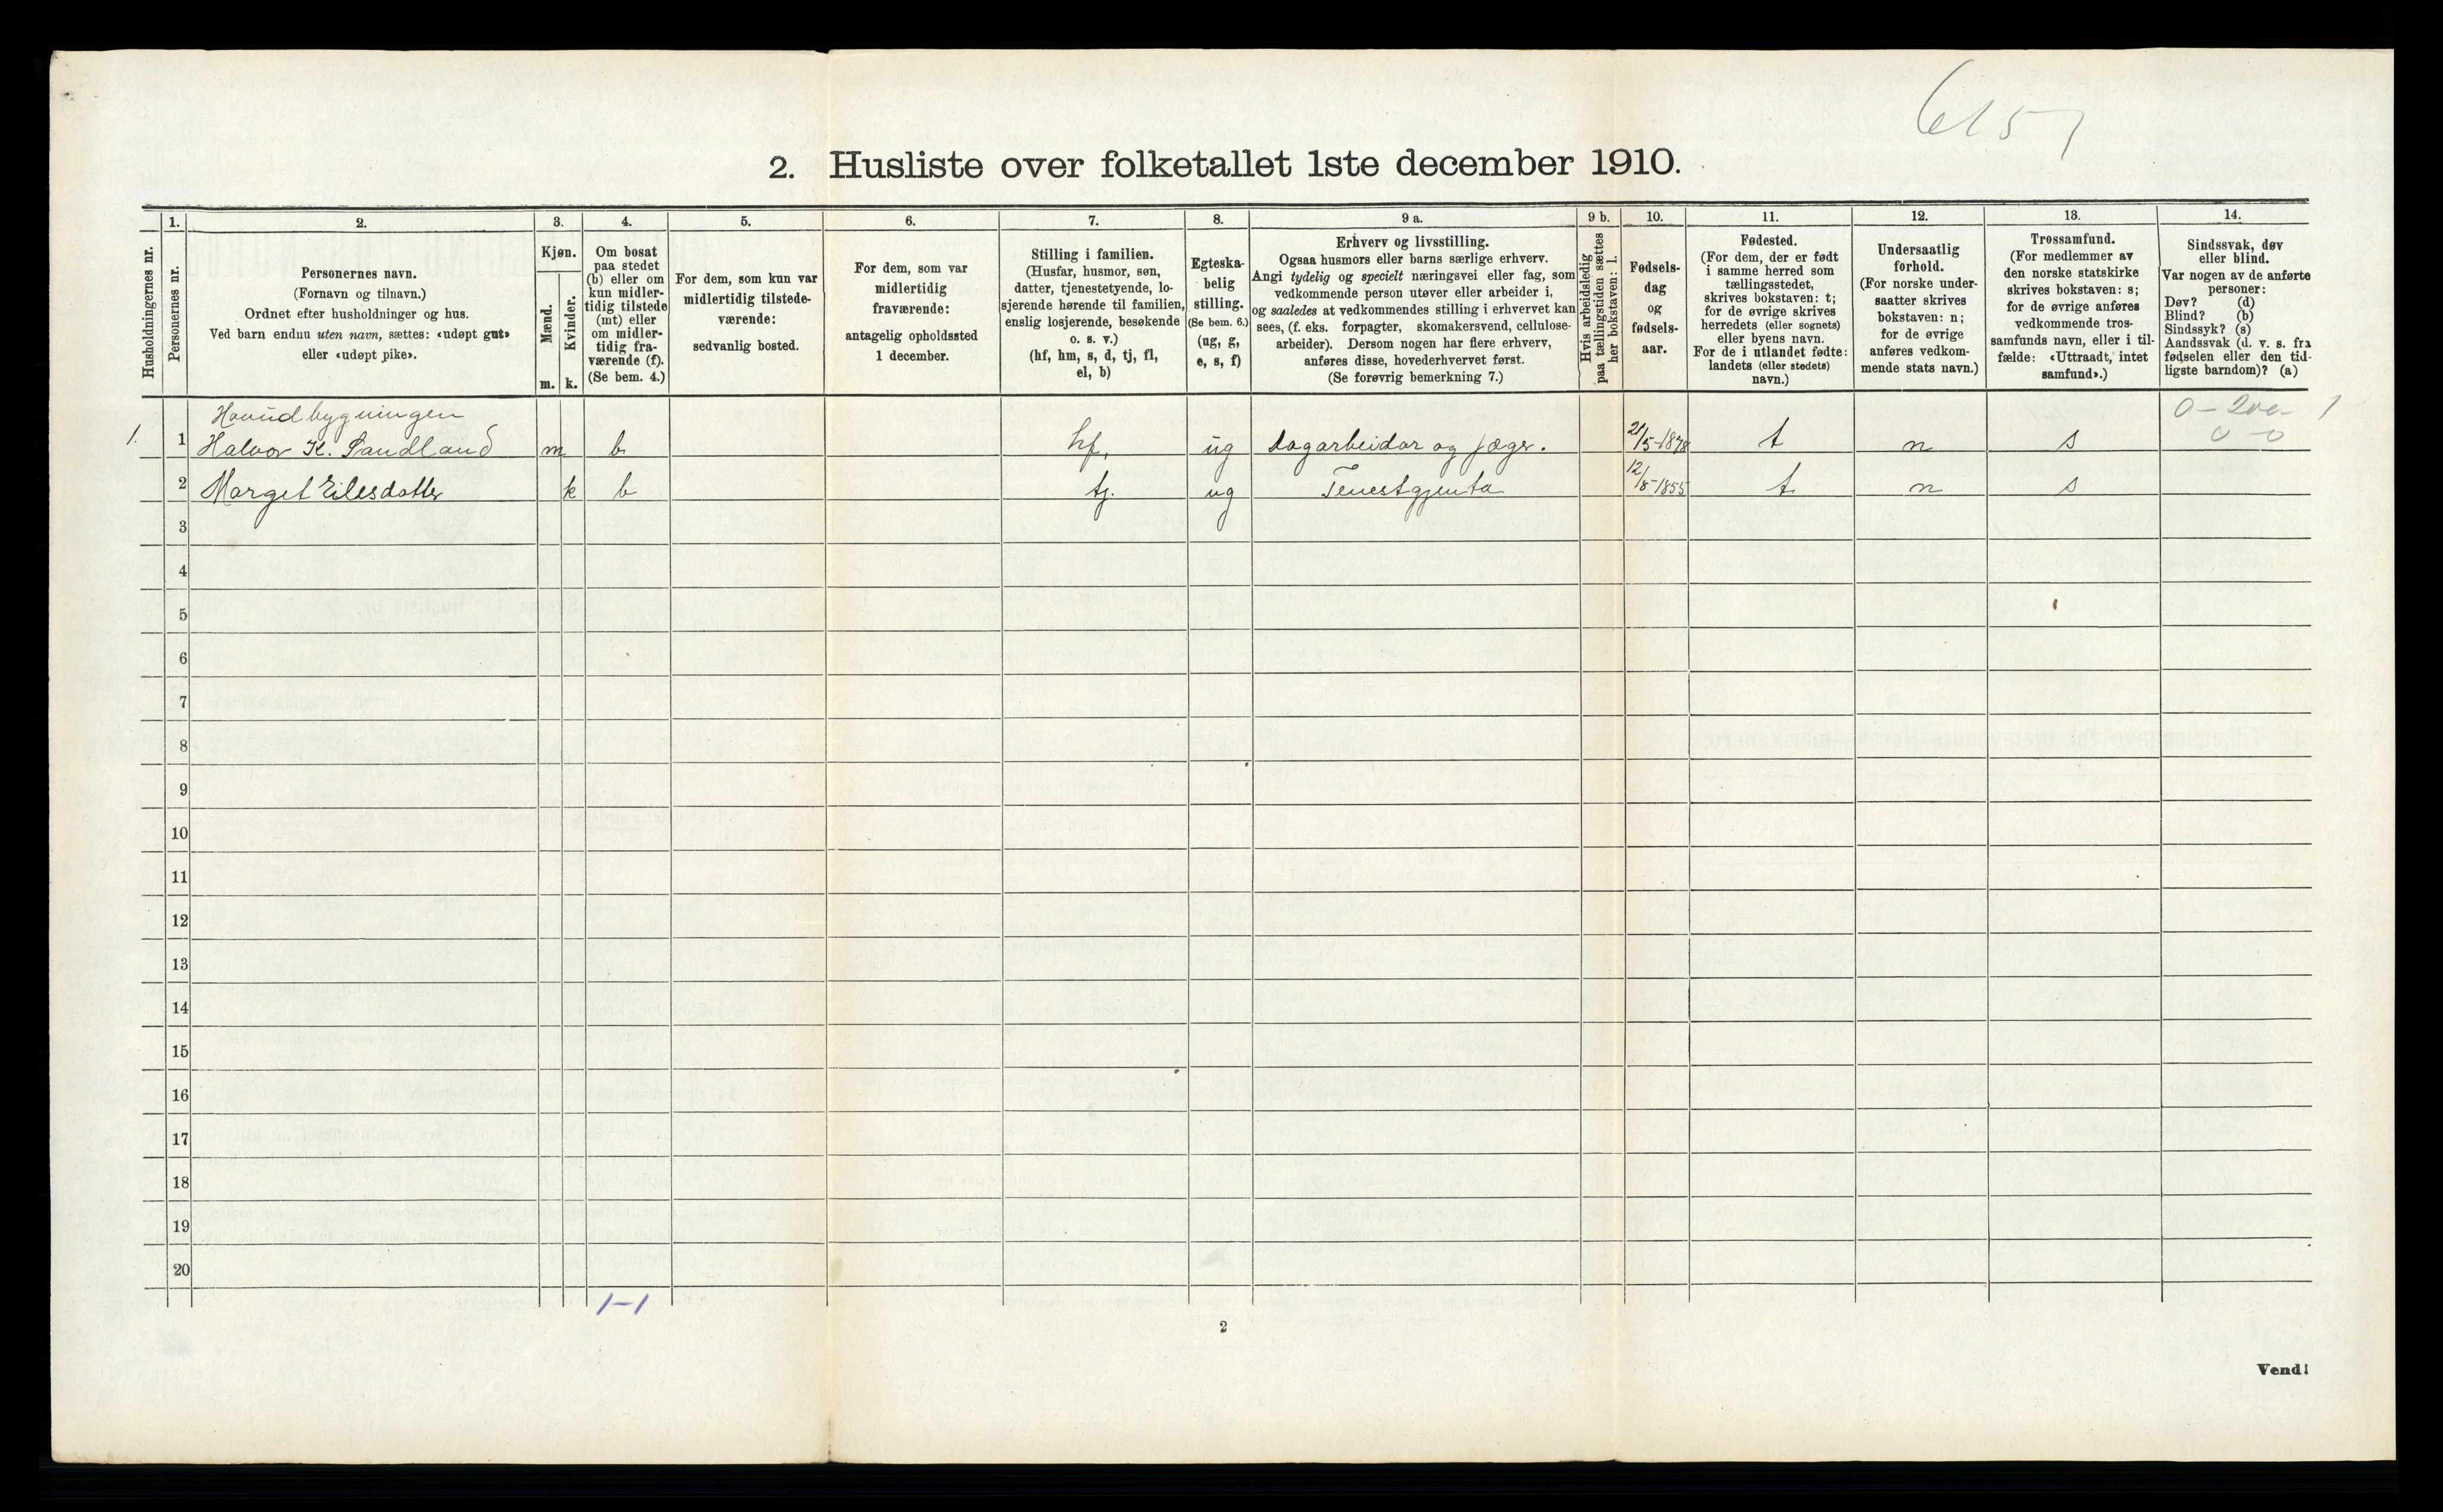 6157
2. Husliste over folketallet 1ste december 1910.
Husholdningernes nr.
1.
Personernes nr.
2.
Personernes navn.
(Fornavn og tilnavn.)
Ordnet efter husholdninger og hus.
Ved barn endnu uten navn, sættes: «udøpt gut»
eller «udøpt pike».
3.
Kjøn.
Mænd.
m.
Kvinder.
k.
4.
Om bosat
paa stedet
(b) eller om
kun midler-
tidig tilstede
(mt) eller
om midler-
tidig fra-
værende (f).
(Se bem. 4.)
5.
For dem, som kun var
midlertidig tilstede-
værende:
sedvanlig bosted.
6.
For dem, som var
midlertidig
fraværende:
antagelig opholdssted
1 december.
7.
Stilling i familien.
(Husfar, husmor, søn,
datter, tjenestetyende, lo-
sjerende hørende til familien,
enslig losjerende, besøkende
o. s. v.)
(hf, hm, s, d, tj, fl,
el, b)
8.
Egteska-
belig
stilling.
(Se bem. 6.)
(ug, g,
e, s, f)
9 a.
Erhverv og livsstilling.
Ogsaa husmors eller barns særlige erhverv.
Angi tydelig og specielt næringsvei eller fag, som
vedkommende person utøver eller arbeider i,
og saaledes at vedkommendes stilling i erhvervet kan
sees, (f. eks. forpagter, skomakersvend, cellulose-
arbeider). Dersom nogen har flere erhverv,
anføres disse, hovederhvervet først.
(Se forøvrig bemerkning 7.)
9 b.
Hvis arbeidsledig
paa tællingstiden sættes
her bokstaven: l.
10.
Fødsels-
dag
og
fødsels-
aar.
11.
Fødested.
(For dem, der er født
i samme herred som
tællingsstedet,
skrives bokstaven: t;
for de øvrige skrives
herredets (eller sognets)
eller byens navn.
For de i utlandet fødte:
landets (eller stedets)
navn.)
12.
Undersaatlig
forhold.
(For norske under-
saatter skrives
bokstaven: n;
for de øvrige
anføres vedkom-
mende stats navn.)
13.
Trossamfund.
(For medlemmer av
den norske statskirke
skrives bokstaven: s;
for de øvrige anføres
vedkommende tros-
samfunds navn, eller i til-
fælde: «Uttraadt, intet
samfund».)
14.
Sindssvak, døv
eller blind.
Var nogen av de anførte
personer:
Døv? (d)
Blind? (b)
Sindssyk? (s)
Aandssvak (d. v. s. fra
fødselen eller den tid-
ligste barndom)? (a)
Hovudbygningen
1. 1 Halvor K. Sandland m b hf. ug Dagarbeidar og jæger. 21/5-1878 t n s 0-0
2 Marget Eilevsdotter k b tj. ug Tenestgjenta 12/8-1855 t n s
3
4
5
6
7
8
9
10
11
12
13
14
15
16
17
18
19
20
1-1
2
Vend!